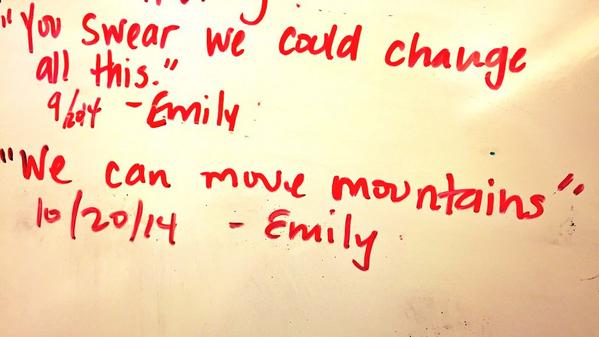 "You swear we could change
all this."
9/2014 - Emily
"We can move mountains"
10/20/14 - Emily